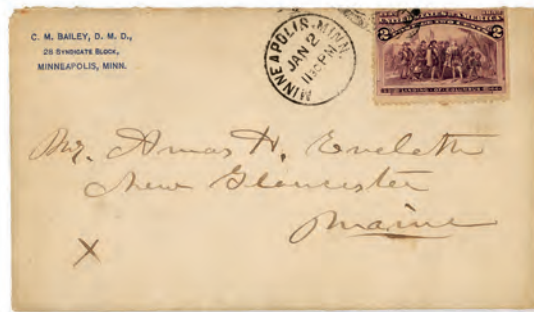 C. M. BAILEY, D. M. D.,
28 SYNDICATE BLOCK,
MINNEAPOLIS, MINN.
MINNEAPOLIS, MINN.
JAN 2
PM
UNITED STATES OF AMERICA
2 2
LANDING OF COLUMBUS
Mr. Amas H. Eveleth
New Gloucester
Maine
X